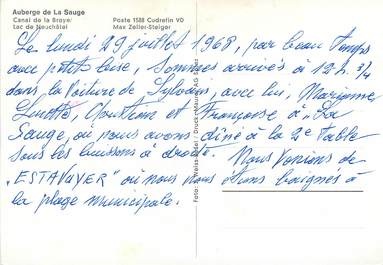 Auberge de La Sauge
Canal de la Broye
Lac de Neuchâtel
Poste 1588 Cudrefin VD
Max Zeller-Steiger
Le lundi 29 juillet 1968, par beau temps
avec petite bise, sommes arrivés à 12h. 3/4
dans la voiture de Sylvain, avec lui, Marianne
Linette, Christian et Françoise à "La
Sauge, où nous avons dîné à la 2e table
sous les buissons à droite. Nous venions de
"ESTAVAYER" où nous nous étions baignés à
la plage municipale.